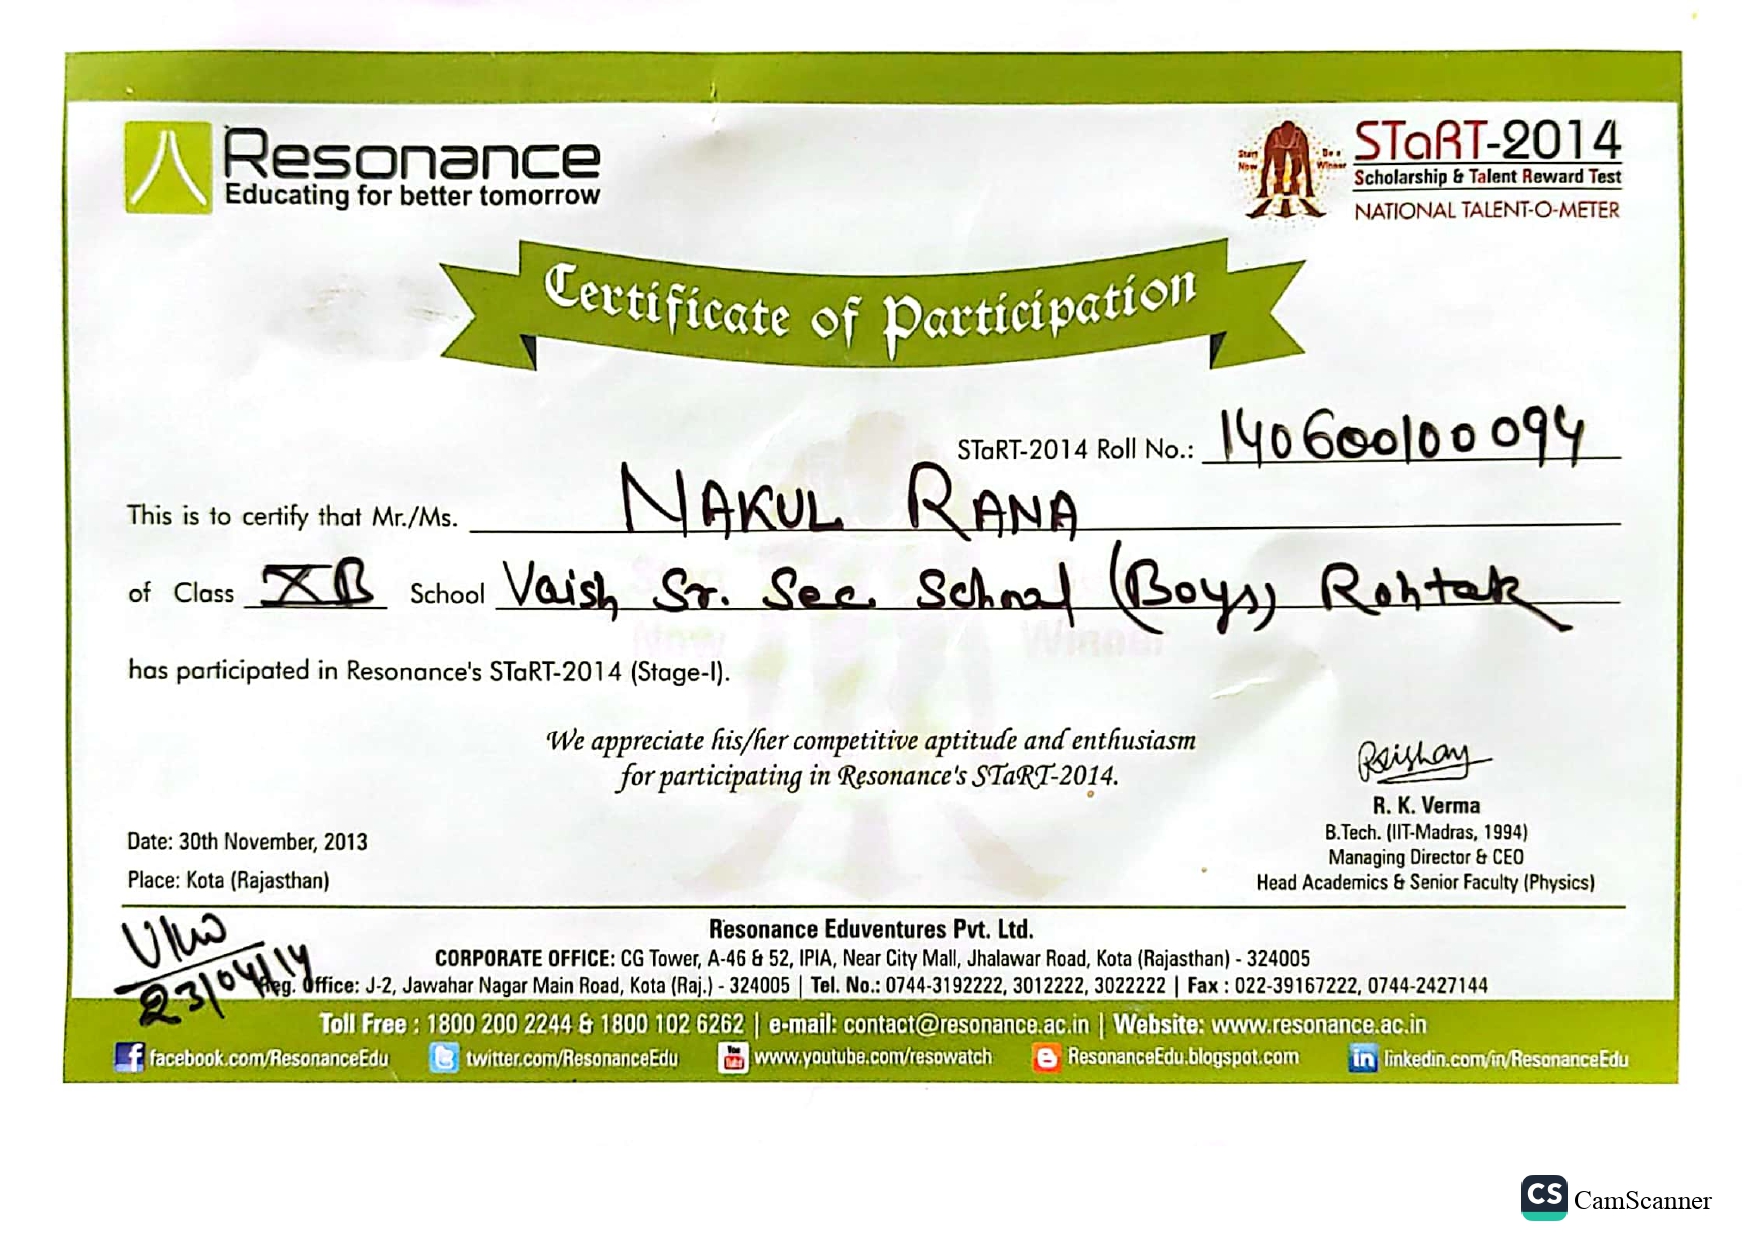 Resonance
Educating for better tomorrow
Start Now
Be a Winner
STaRT-2014
Scholarship & Talent Reward Test
NATIONAL TALENT-O-METER
Certificate of Participation
STaRT-2014 Roll No.: 140600100094
This is to certify that Mr./Ms. NAKUL RANA
of Class XB School Vaish Sr. Sec. School (Boys) Rohtak
has participated in Resonance's STaRT-2014 (Stage-I).
We appreciate his/her competitive aptitude and enthusiasm
for participating in Resonance's STaRT-2014.
R. K. Verma
B.Tech. (IIT-Madras, 1994)
Managing Director & CEO
Head Academics & Senior Faculty (Physics)
Date: 30th November, 2013
Place: Kota (Rajasthan)
23/04/14
Resonance Eduventures Pvt. Ltd.
CORPORATE OFFICE: CG Tower, A-46 & 52, IPIA, Near City Mall, Jhalawar Road, Kota (Rajasthan) - 324005
Reg. Office: J-2, Jawahar Nagar Main Road, Kota (Raj.) - 324005 | Tel. No.: 0744-3192222, 3012222, 3022222 | Fax : 022-39167222, 0744-2427144
Toll Free : 1800 200 2244 & 1800 102 6262 | e-mail: contact@resonance.ac.in | Website: www.resonance.ac.in
facebook.com/ResonanceEdu twitter.com/ResonanceEdu www.youtube.com/resowatch ResonanceEdu.blogspot.com linkedin.com/in/ResonanceEdu
CS CamScanner